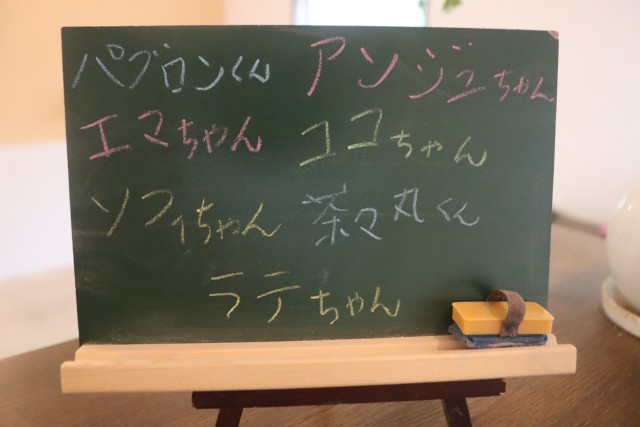 パブロンくん アンジュちゃん
エマちゃん ココちゃん
ソフィちゃん 茶々丸くん
ラテちゃん